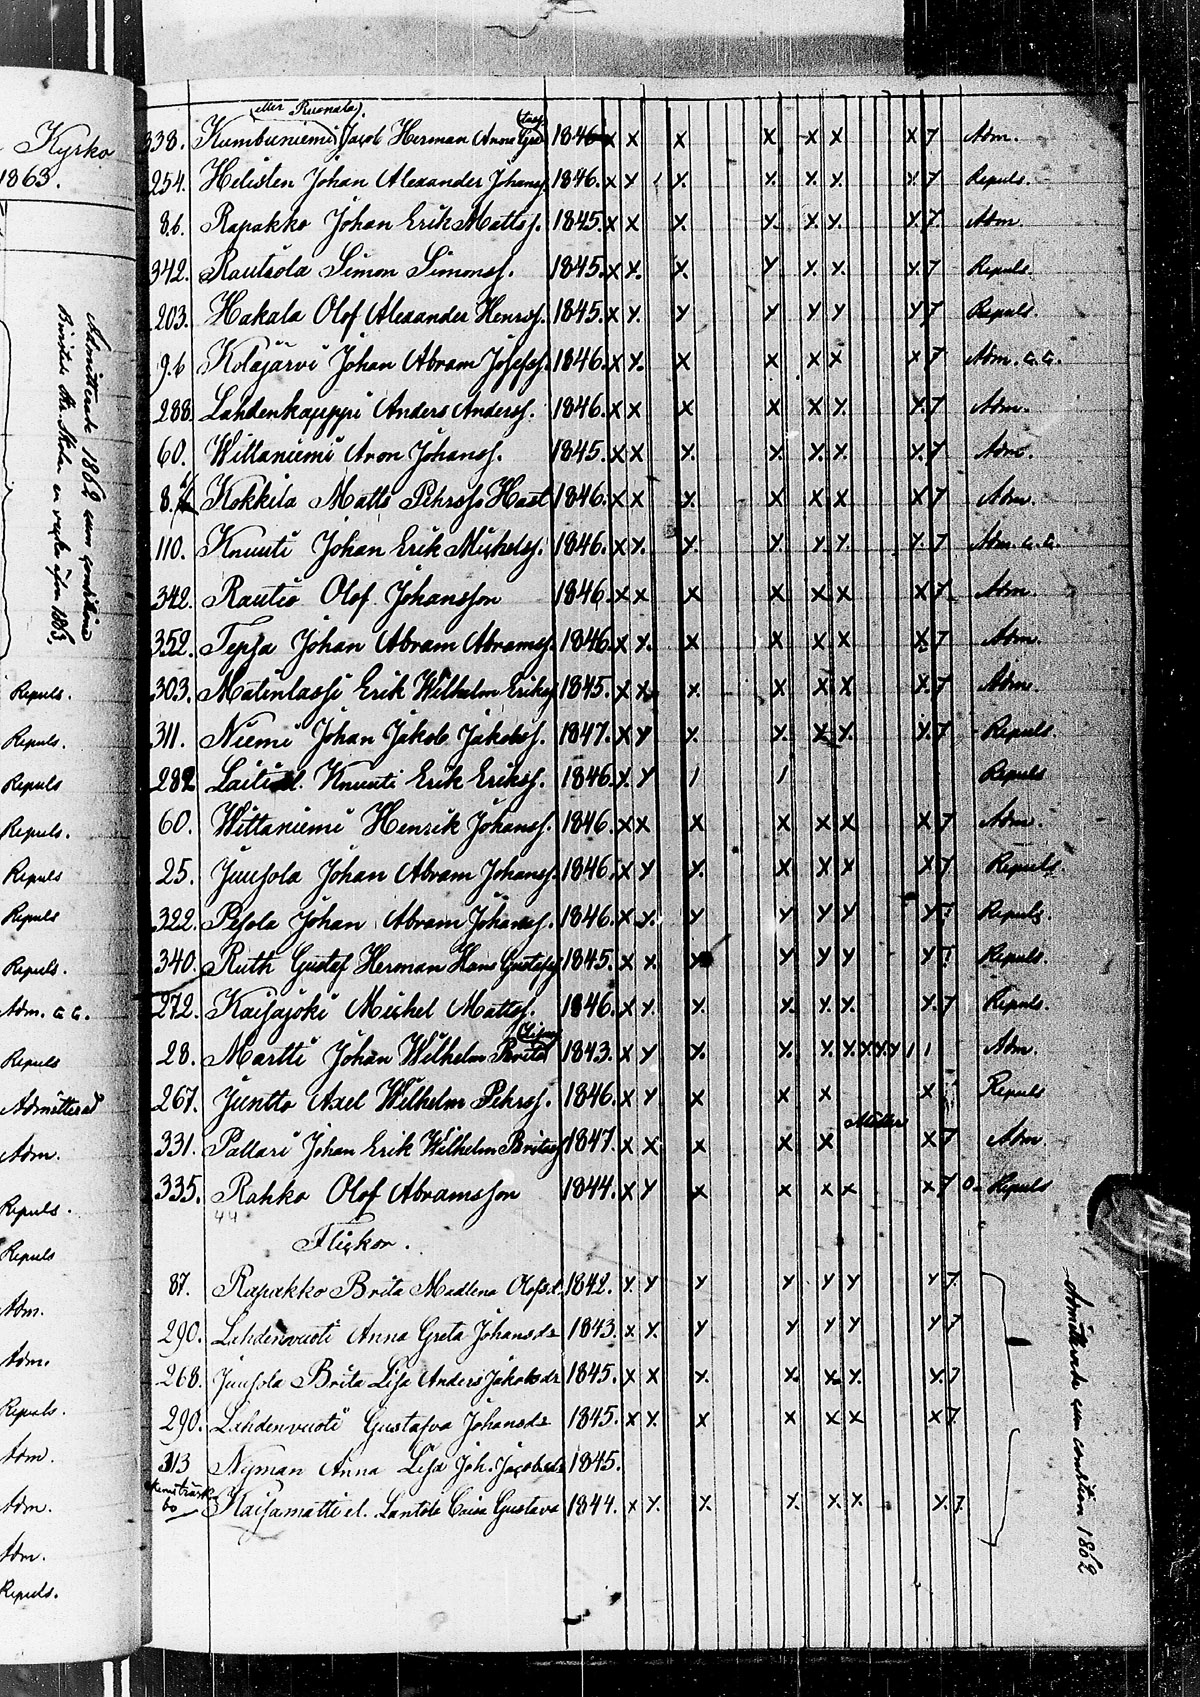 Kyrko
1863.
Admitterade 1862 cum conditione
Repuls.
Repuls.
Repuls
Repuls.
Repuls
Repuls
Repuls.
Adm. C. C.
Repuls
Admitterad
Adm.
Repuls.
Repuls
Adm.
Adm.
Repuls.
Adm.
Adm.
Adm.
Repuls.
eller Ruonala
338. Kumbuniemi Jacob Herman Anna Gre 1846 x x x x x x x 7 Adm.
254. Helisten Johan Alexander Johanss. 1846. x x x x x x x 7 Repuls.
86. Rapakko Johan Erik Mattss. 1845. x x x x x x x 7 Adm.
342. Rautiola Simon Simonss. 1845. x x x x x x x 7 Repuls.
203. Hakala Olof Alexander Henrss. 1845. x x x x x x x 7 Repuls.
96 Kolajärvi Johan Abram Josefss. 1846. x x x x x x x 7 Adm. C. C.
288 Lahdenkauppi Anders Anderss. 1846. x x x x x x x 7 Adm.
60. Wittaniemi Aron Johanss. 1845. x x x x x x x 7 Adm.
8. Kokkila Matts Pehrss. Hast 1846. x x x x x x x 7 Adm.
110. Knuuti Johan Erik Michelss. 1846. x x x x x x x 7 Adm. C. C.
342. Rautio Olof Johansson 1846. x x x x x x x 7 Adm.
352. Tepsa Johan Abram Abramss. 1846. x x x x x x x 7 Adm.
303. Matinlassi Erik Wilhelm Erikss 1845. x x x x x x x 7 Adm.
311. Niemi Johan Jakob Jakobss. 1847. x x x x x x x 7 Repuls.
282 Laiti el. Knuuti Erik Erikss. 1846. x x / / Repuls
60. Wittaniemi Henrik Johanss. 1846. x x x x x x x 7 Adm.
25. Juusola Johan Abram Johanss. 1846. x x x x x x x 7 Repuls.
322. Pesola Johan Abram Johanss. 1846. x x x x x x x 7 Repuls.
340. Ruth Gustaf Herman Hans Gustafss 1845. x x x x x x x 7 Repuls.
272. Kaisajoki Michel Mattss. 1846. x x x x x x x 7 Repuls.
28. Martti Johan Wilhelm Brita 1843. x x x x x x x x x / / Adm.
267. Juntto Axel Wilhelm Pehrss. 1846. x x x x x x Repuls
331. Pallari Johan Erik Wilhelm Britas 1847. x x x x x x 7 Adm
335. Rahko Olof Abramsson 1844. x x x x x x x 7 0 - Repuls
44
Flickor.
87. Rapakko Brita Madlena Olofsd. 1842. x x x x x x x 7.
290. Lehdenvuoti Anna Greta Johansdr 1843. x x x x x x x 7
268. Juusola Brita Lisa Anders Jakobsdr 1845. x x x x x x x 7
290. Lehdenvuoti Gustafva Johansdr 1845. x x x x x x x 7.
313 Nyman Anna Lisa Joh. Jacobsdr 1845.
60 Kaisamatti el. Lantola Caisa Gustava 1844. x x x x x x x 7.
Admitterade cum condition 1862